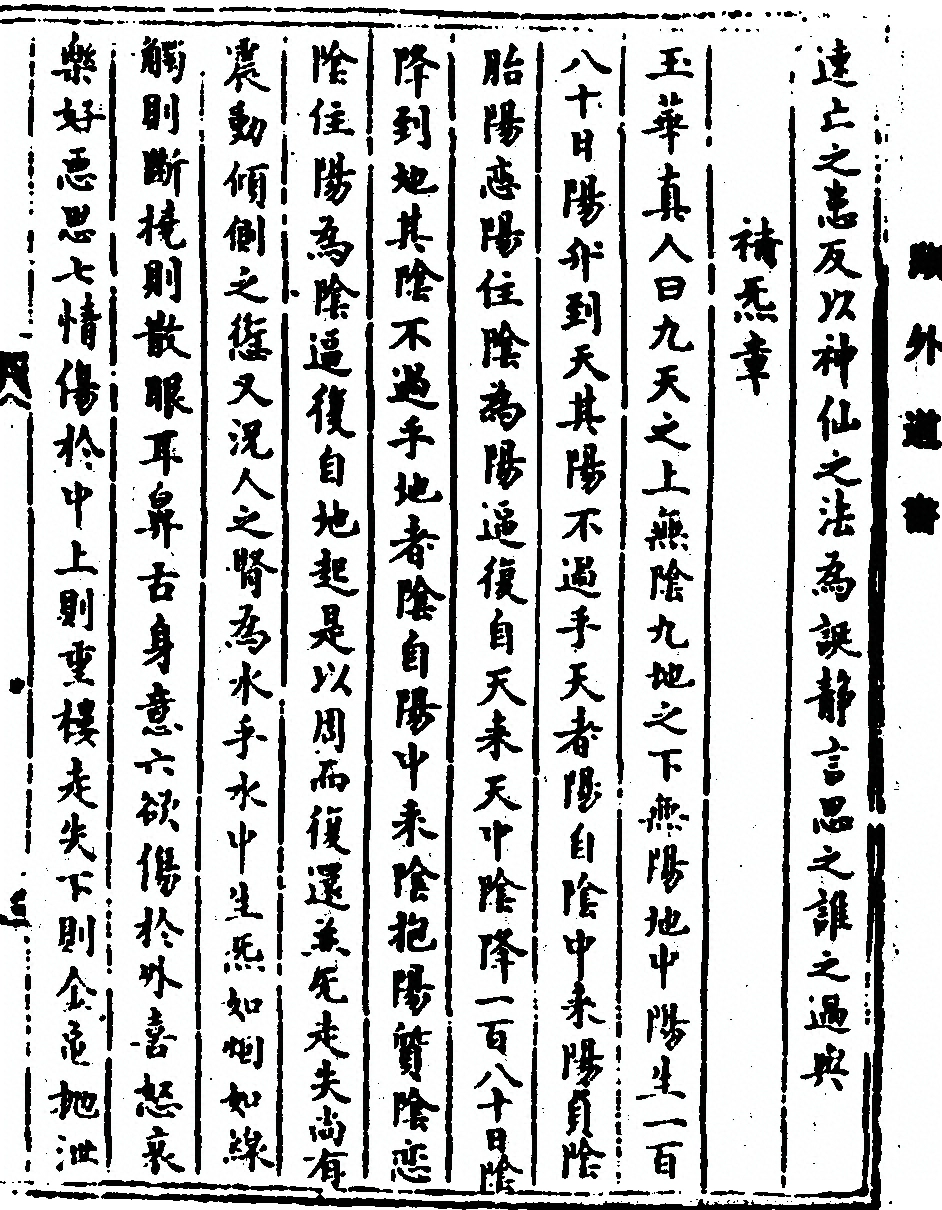 藏外道書
速亡之患反以神仙之法為誤靜言思之誰之過與
補炁章
玉華真人曰九天之上無陰九地之下無陽地中陽生一百
八十日陽升到天其陽不過乎天者陽自陰中來陽負陰
胎陽戀陽住陰為陽逼復自天來天中陰降一百八十日陰
降到地其陰不過乎地者陰自陽中來陰抱陽質陰戀
陰住陽為陰逼復自地起是以周而復還並无走失尚有
震動傾側之愆又況人之腎為水乎水中生炁如烟如線
觸則斷撓則散眼耳鼻舌身意六欲傷於外喜怒哀
樂好惡思七情傷於中上則重樓走失下則金龜抛泄